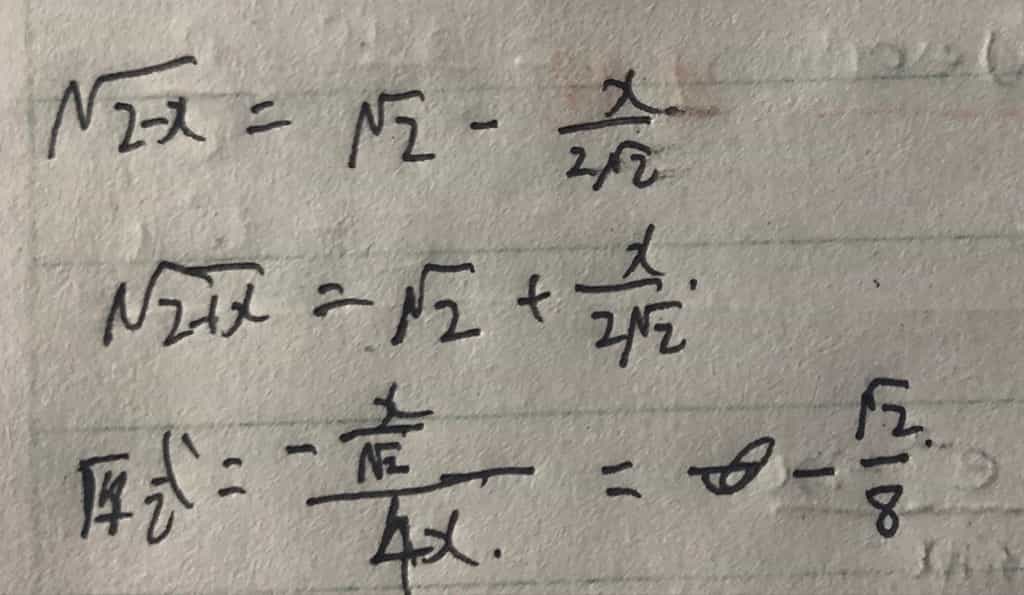 √(2-x) = √2 - x/(2√2)
√(2+x) = √2 + x/(2√2).
原式 = (-x/√2)/(4x). = -√2/8.